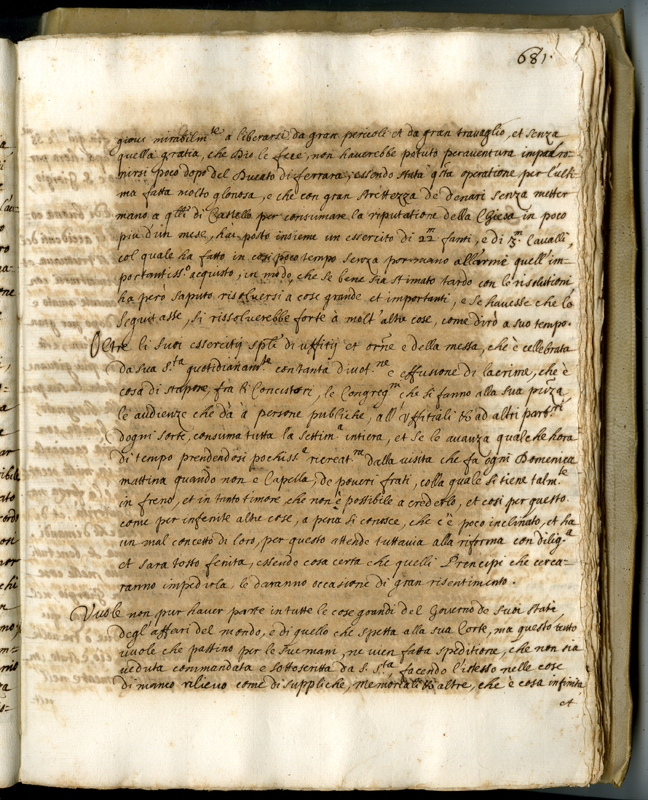 681.
giouò mirabilm.te a liberarsi da gran pericoli et da gran trauaglio, et senza
quella gratia, che Dio le fece, non hauerebbe potuto perauentura impadro
nirsi poco dopo del Ducato di ferrara, essendo stata q.sta operatione per l'ulti
ma fatta molto gloriosa, e che con gran strettezza de denari senza metter
mano a q.lli di Castello per consumare la riputatione della Chiesa in poco
piu d'un mese, hau. posto insieme un essercito di 22.m fanti, e di 3.m Caualli,
col quale ha fatto in cosi poco tempo senza por mano all'arme quell'im-
portantiss.o acquisto, in modo, che se bene sia stimato tardo con le risolutioni
ha però saputo risoluersi a cose grande et importanti, e se hauesse che lo
seguitasse, si rissoluerebbe forte à molt'altre cose, come dirò a suo tempo.
Oltre li suoi essercitij sp.li di uffitij et or.ne e della messa, che è cellebrata
da sua s.ta quotidianam.te con tanta diuot.ne e effusione di lacrime, che è
cosa di stupore, frà li Concistori, le Congreg.ni che si fanno alla sua p.nza
le audienze che da à persone publiche, all'Vffitiali et ad altri part.ri
dogni sorte, consuma tutta la settim.a intiera, et se le auanza qualche hora
di tempo prendendosi pochiss.a ricreat.ne dalla uisita che fa ogni Domenica
mattina quando non è Capella, de poueri frati, colla quale si tiene talm.te
in freno, et in tanto timore che non è possibile a crederlo, et cosi per questo.
come per infenite altre cose, a pena si conosce, che c'è poco inclinato, et ha
un mal concetto di loro, per questo attende tuttauia alla riforma con dilig.a
et sara tosto fenita, essendo cosa certa che quelli Prencipi che cerca-
ranno impedirla le daranno occasione di gran risentimento.
Vuole non pur hauer parte in tutte le cose grandi del Gouerno de suoi stati
degl'affari del mondo, e di quello che spetta alla sua Corte, ma questo tutto
uuole che passino per le sue mani, ne uien fatta speditione, che non sia
ueduta commandata e sottoscritta da S. S.tà, facendo l'istesso nelle cose
di manco rilieuo come di suppliche, memoriali et altre, che è cosa infinita
et